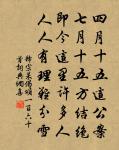 四月十五這公案
七月十五方結絕
即今這裏許多人
人人有理難分雪
釋宗杲偈頌一百六十
首